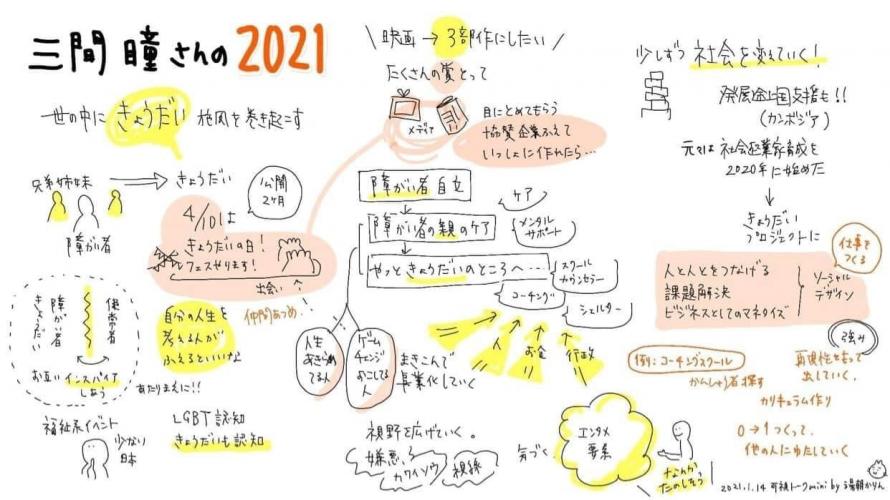 三間 瞳さんの 2021
世の中に きょうだい 旋風を巻き起こす
兄弟姉妹 → きょうだい
障がい者
公開
2ヶ月
4/10は
きょうだいの日!
フェスやります!
出会い
仲間あつめ
健常者
障がい者
きょうだい
お互いインスパイア
しあう
自分の人生を
考える人が
ふえるといいな
あたりまえに!!
福祉系イベント
少ない
日本
LGBT認知
きょうだいも認知
\ 映画 → 3部作にしたい /
たくさんの賞とって
メディア
目にとめてもらう
協賛企業ふえて
いっしょに作れたら…
障がい者自立
障がい者の親のケア
やっときょうだいのところへ…
ケア
メンタル
サポート
スクール
カウンセラー
コーチング
シェルター
人
お金
行政
人生
あきらめ
てる人
ゲーム
チェンジ
おこしてる
人
まきこんで
事業化していく
視野を広げていく。
嫌悪、
カワイソウ
視線
気づく
エンタメ
要素
なんか
たのしそう
少しずつ 社会を変えていく!
発展途上国支援も!!
(カンボジア)
元々は 社会起業家育成を
2020年に始めた
きょうだい
プロジェクトに
仕事を
つくる
人と人とをつなげる
課題解決
ビジネスとしてのマネタイズ
ソーシャル
デザイン
強み
例:コーチングスクール
再現性をもって
出していく。
カリキュラム作り
0→1つくって、
他の人にゆだしていく
2021.1.14 可視トークmini by 湯朝かりん